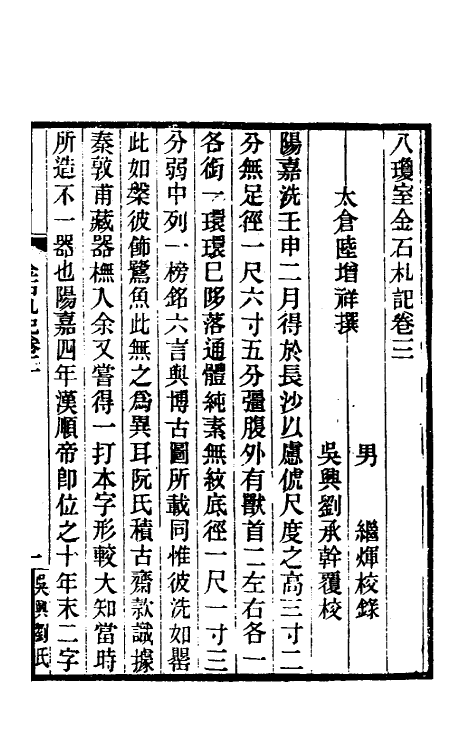 八瓊室金石札記卷三
太倉陸增祥撰
男　繼煇校錄
吳興劉承幹覆校
陽嘉洗壬申二月得於長沙以慮俿尺度之高三寸二
分無足徑一尺六寸五分彊腹外有獸首二左右各一
各銜一環環已哆落通體純素無紋底徑一尺一寸三
分弱中列一榜銘六言與博古圖所載同惟彼洗如罌
此如槃彼飾鷺魚此無之爲異耳阮氏積古齋款識據
秦敦甫藏器橅入余又嘗得一打本字形較大知當時
所造不一器也陽嘉四年漢順帝卽位之十年末二字
金石札記卷三
一
吳興劉氏